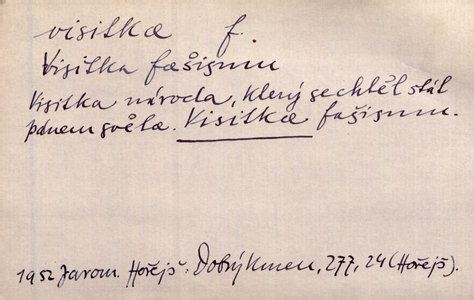 visitka f.
Visitka fašismu
Visitka národa, který se chtěl stát
pánem světa. Visitka fašismu.
1952 Jarom. Hořejš: Dobrý kmen, 277, 24 (Hořejš).